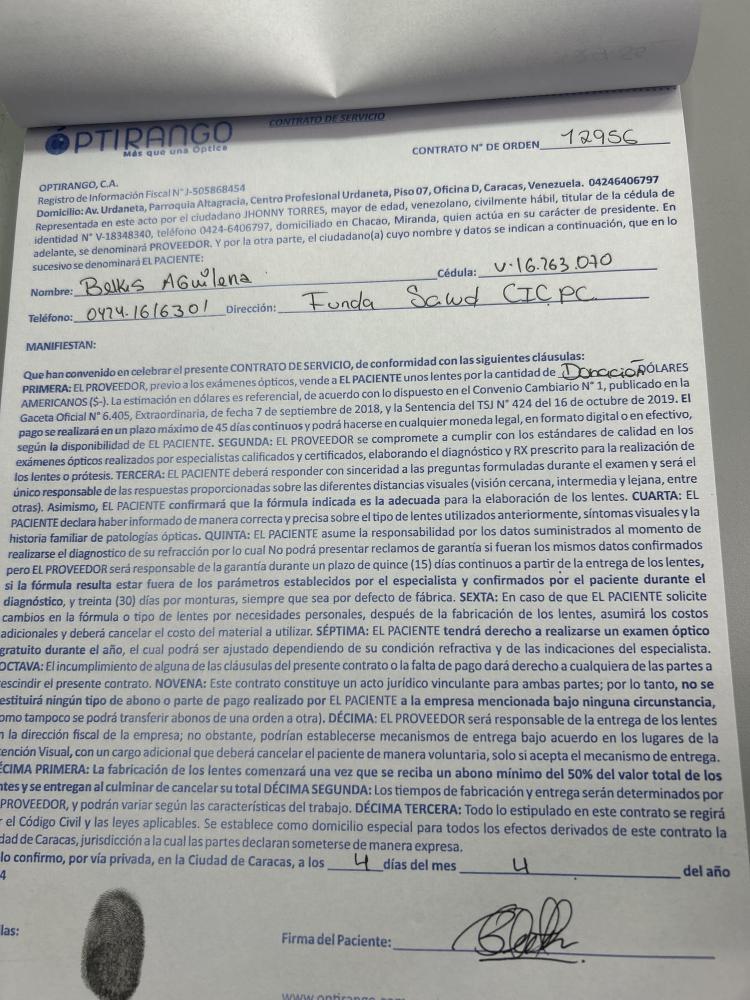 CONTRATO DE SERVICIO
OPTIRANGO
Más que una Óptica
CONTRATO N° DE ORDEN 12956
OPTIRANGO, C.A.
Registro de Información Fiscal N° J-505868454
Domicilio: Av. Urdaneta, Parroquia Altagracia, Centro Profesional Urdaneta, Piso 07, Oficina D, Caracas, Venezuela. 04246406797
Representada en este acto por el ciudadano JHONNY TORRES, mayor de edad, venezolano, civilmente hábil, titular de la cédula de
identidad N° V-18348340, teléfono 0424-6406797, domiciliado en Chacao, Miranda, quien actúa en su carácter de presidente. En
adelante, se denominará PROVEEDOR. Y por la otra parte, el ciudadano(a) cuyo nombre y datos se indican a continuación, que en lo
sucesivo se denominará EL PACIENTE:
Nombre: Belkis Aguilena Cédula: V-16.763.070
Teléfono: 0424-1616301 Dirección: Funda Salud CICPC
MANIFIESTAN:
Que han convenido en celebrar el presente CONTRATO DE SERVICIO, de conformidad con las siguientes cláusulas:
PRIMERA: EL PROVEEDOR, previo a los exámenes ópticos, vende a EL PACIENTE unos lentes por la cantidad de Donación DÓLARES
AMERICANOS ($-). La estimación en dólares es referencial, de acuerdo con lo dispuesto en el Convenio Cambiario N° 1, publicado en la
Gaceta Oficial N° 6.405, Extraordinaria, de fecha 7 de septiembre de 2018, y la Sentencia del TSJ N° 424 del 16 de octubre de 2019. El
pago se realizará en un plazo máximo de 45 días continuos y podrá hacerse en cualquier moneda legal, en formato digital o en efectivo,
según la disponibilidad de EL PACIENTE. SEGUNDA: EL PROVEEDOR se compromete a cumplir con los estándares de calidad en los
exámenes ópticos realizados por especialistas calificados y certificados, elaborando el diagnóstico y RX prescrito para la realización de
los lentes o prótesis. TERCERA: EL PACIENTE deberá responder con sinceridad a las preguntas formuladas durante el examen y será el
único responsable de las respuestas proporcionadas sobre las diferentes distancias visuales (visión cercana, intermedia y lejana, entre
otras). Asimismo, EL PACIENTE confirmará que la fórmula indicada es la adecuada para la elaboración de los lentes. CUARTA: EL
PACIENTE declara haber informado de manera correcta y precisa sobre el tipo de lentes utilizados anteriormente, síntomas visuales y la
historia familiar de patologías ópticas. QUINTA: EL PACIENTE asume la responsabilidad por los datos suministrados al momento de
realizarse el diagnostico de su refracción por lo cual No podrá presentar reclamos de garantía si fueran los mismos datos confirmados
pero EL PROVEEDOR será responsable de la garantía durante un plazo de quince (15) días continuos a partir de la entrega de los lentes,
si la fórmula resulta estar fuera de los parámetros establecidos por el especialista y confirmados por el paciente durante el
diagnóstico, y treinta (30) días por monturas, siempre que sea por defecto de fábrica. SEXTA: En caso de que EL PACIENTE solicite
cambios en la fórmula o tipo de lentes por necesidades personales, después de la fabricación de los lentes, asumirá los costos
adicionales y deberá cancelar el costo del material a utilizar. SÉPTIMA: EL PACIENTE tendrá derecho a realizarse un examen óptico
gratuito durante el año, el cual podrá ser ajustado dependiendo de su condición refractiva y de las indicaciones del especialista.
OCTAVA: El incumplimiento de alguna de las cláusulas del presente contrato o la falta de pago dará derecho a cualquiera de las partes a
escindir el presente contrato. NOVENA: Este contrato constituye un acto jurídico vinculante para ambas partes; por lo tanto, no se
estituirá ningún tipo de abono o parte de pago realizado por EL PACIENTE a la empresa mencionada bajo ninguna circunstancia,
omo tampoco se podrá transferir abonos de una orden a otra). DÉCIMA: EL PROVEEDOR será responsable de la entrega de los lentes
n la dirección fiscal de la empresa; no obstante, podrían establecerse mecanismos de entrega bajo acuerdo en los lugares de la
ención Visual, con un cargo adicional que deberá cancelar el paciente de manera voluntaria, solo si acepta el mecanismo de entrega.
ÉCIMA PRIMERA: La fabricación de los lentes comenzará una vez que se reciba un abono mínimo del 50% del valor total de los
ntes y se entregan al culminar de cancelar su total DÉCIMA SEGUNDA: Los tiempos de fabricación y entrega serán determinados por
PROVEEDOR, y podrán variar según las características del trabajo. DÉCIMA TERCERA: Todo lo estipulado en este contrato se regirá
r el Código Civil y las leyes aplicables. Se establece como domicilio especial para todos los efectos derivados de este contrato la
dad de Caracas, jurisdicción a la cual las partes declaran someterse de manera expresa.
lo confirmo, por vía privada, en la Ciudad de Caracas, a los 4 días del mes 4 del año
4
las:
Firma del Paciente:
www.optirango.com